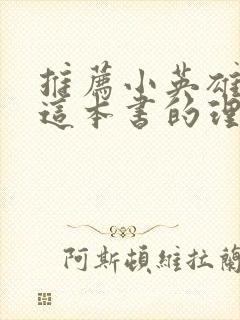 推薦小英雄
這本書的理
阿斯頓維拉蘭